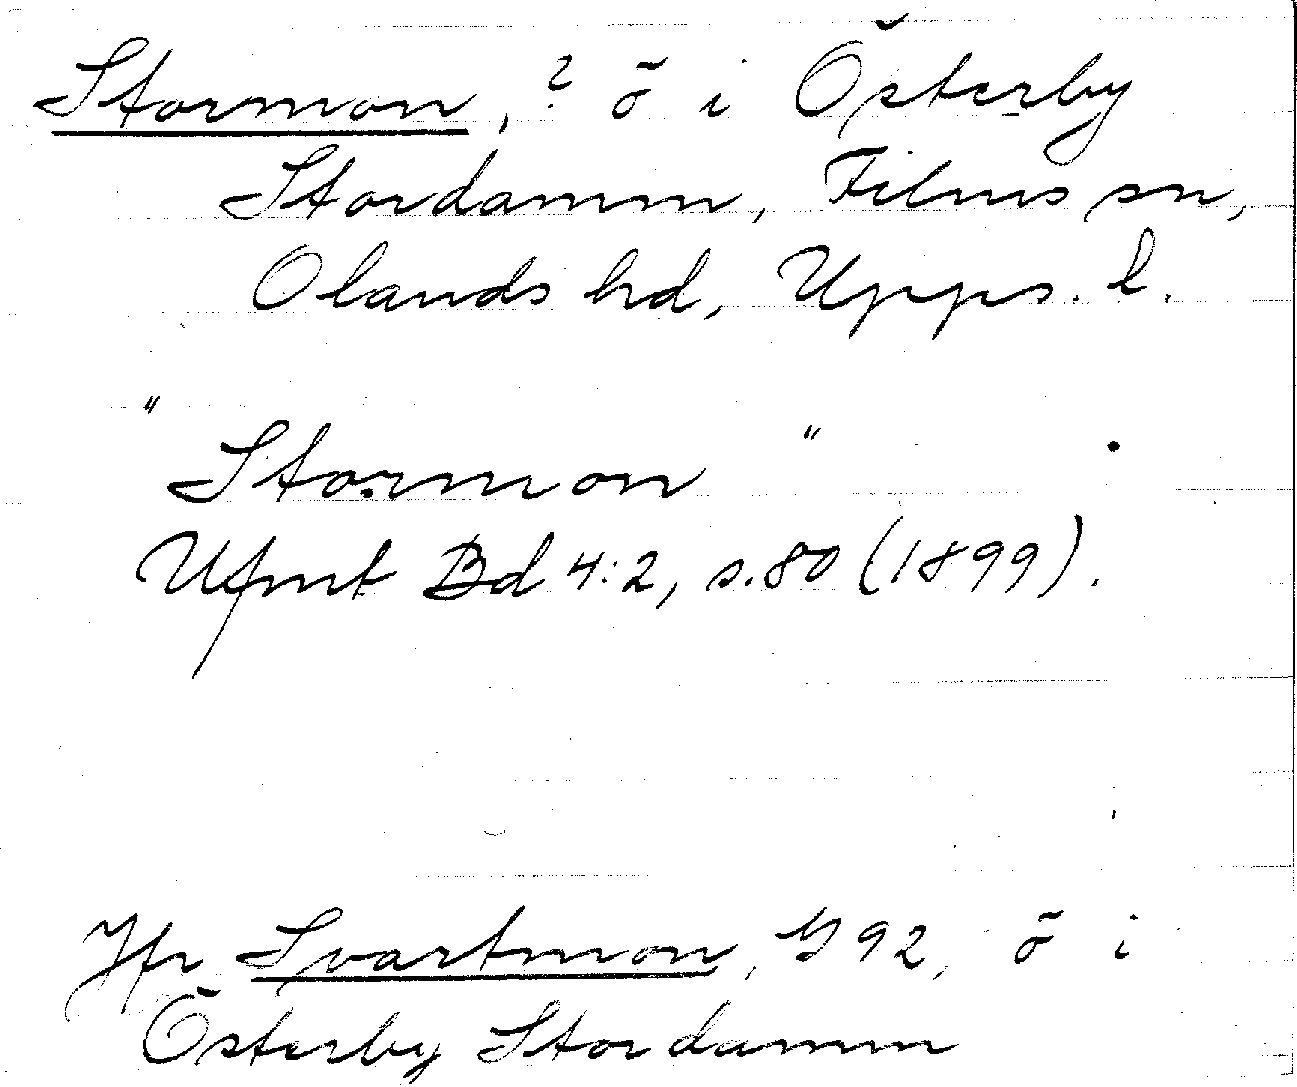 Stormon, ? ö i Österby
Stordamm, Films sn,
Olands hd, Upps. l.
"Stormon"
Ufmt Bd 4:2, s. 80 (1899).
Jfr Svartmon, 992, ö i
Österby Stordamm